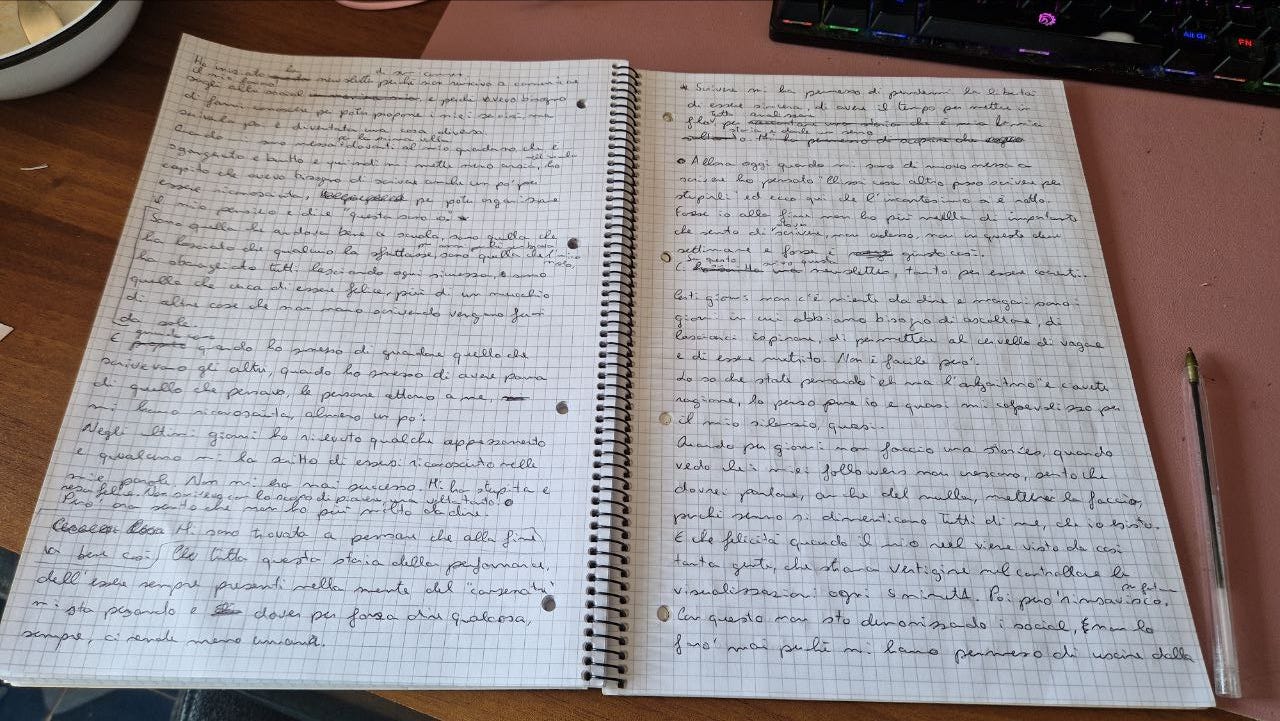 Ho iniziato la newsletter perché non riuscivo a comunicare
sugli altri social e perché avevo bisogno
di farmi conoscere per poter proporre i miei servizi ma
scrivendo poi è diventata una cosa diversa
Quando sono messa davanti al mio quaderno che è
sgangherato e brutto e quindi mi mette meno ansia, ho
capito che avevo bisogno di scrivere anche un po' per
essere riconosciuta, per poter organizzare
il mio pensiero e dire "questa sono io" *
Sono quella che andava bene a scuola, sono quella che
ha lasciato che qualcuno la sfruttasse, sono quella che
ha abbracciato tutti lasciando ogni rimorso, e sono
quella che cerca di essere felice, più di un mucchio
di altre cose che man mano scrivendo vengono fuori
da sole.
E quando ho smesso di guardare quello che
scrivevano gli altri, quando ho smesso di avere paura
di quello che pensavo, le persone attorno a me,
mi hanno riconosciuta, almeno un po'.
Negli ultimi giorni ho ricevuto qualche apprezzamento
e qualcuno mi ha scritto di essersi riconosciuto nelle
mie parole. Non mi era mai successo. Mi ha stupita e
resa felice. Non scrivevo con lo scopo di piacere, una volta tanto. o
Però ora sento che non ho più molto da dire.
Mi sono trovata a pensare che alla fine
va bene così. Che tutta questa storia della performance,
dell'essere sempre presenti nella mente del "consumatore"
mi sta pesando e dover per forza dire qualcosa,
sempre, ci rende meno umani.
* Scrivere mi ha permesso di prendermi la libertà
di essere sincera, di avere il tempo per mettere in
o Allora oggi quando mi sono di nuovo messa a
scrivere ho pensato "Chissà cosa altro posso scrivere per
stupirli" ed ecco qui che l'incantesimo si è rotto.
Forse io alla fine non ho più nulla di importante
che sento di scrivere, non adesso, non in queste due
settimane e forse è giusto così.
newsletter, tanto per essere coerenti.
Certi giorni non c'è niente da dire e magari sono i
giorni in cui abbiamo bisogno di ascoltare, di
lasciarci ispirare, di permettere al cervello di vagare
e di essere nutrito. Non è facile però.
Lo so che state pensando "eh ma l'algoritmo" e avete
ragione, lo penso pure io e quasi mi colpevolizzo per
il mio silenzio, quasi.
Quando per giorni non faccio una stories, quando
vedo che i miei followers non crescono, sento che
dovrei parlare, anche del nulla, metterci la faccia,
perché senno si dimenticano tutti di me, che io esisto.
E che felicità quando il mio reel viene visto da così
tanta gente, che strana vertigine nel controllare le
visualizzazioni ogni 5 minuti. Poi però rinsavisco.
Con questo non sto demonizzando i social, e non lo
farò mai perché mi hanno permesso di uscire dalla
Alt Gr
FN